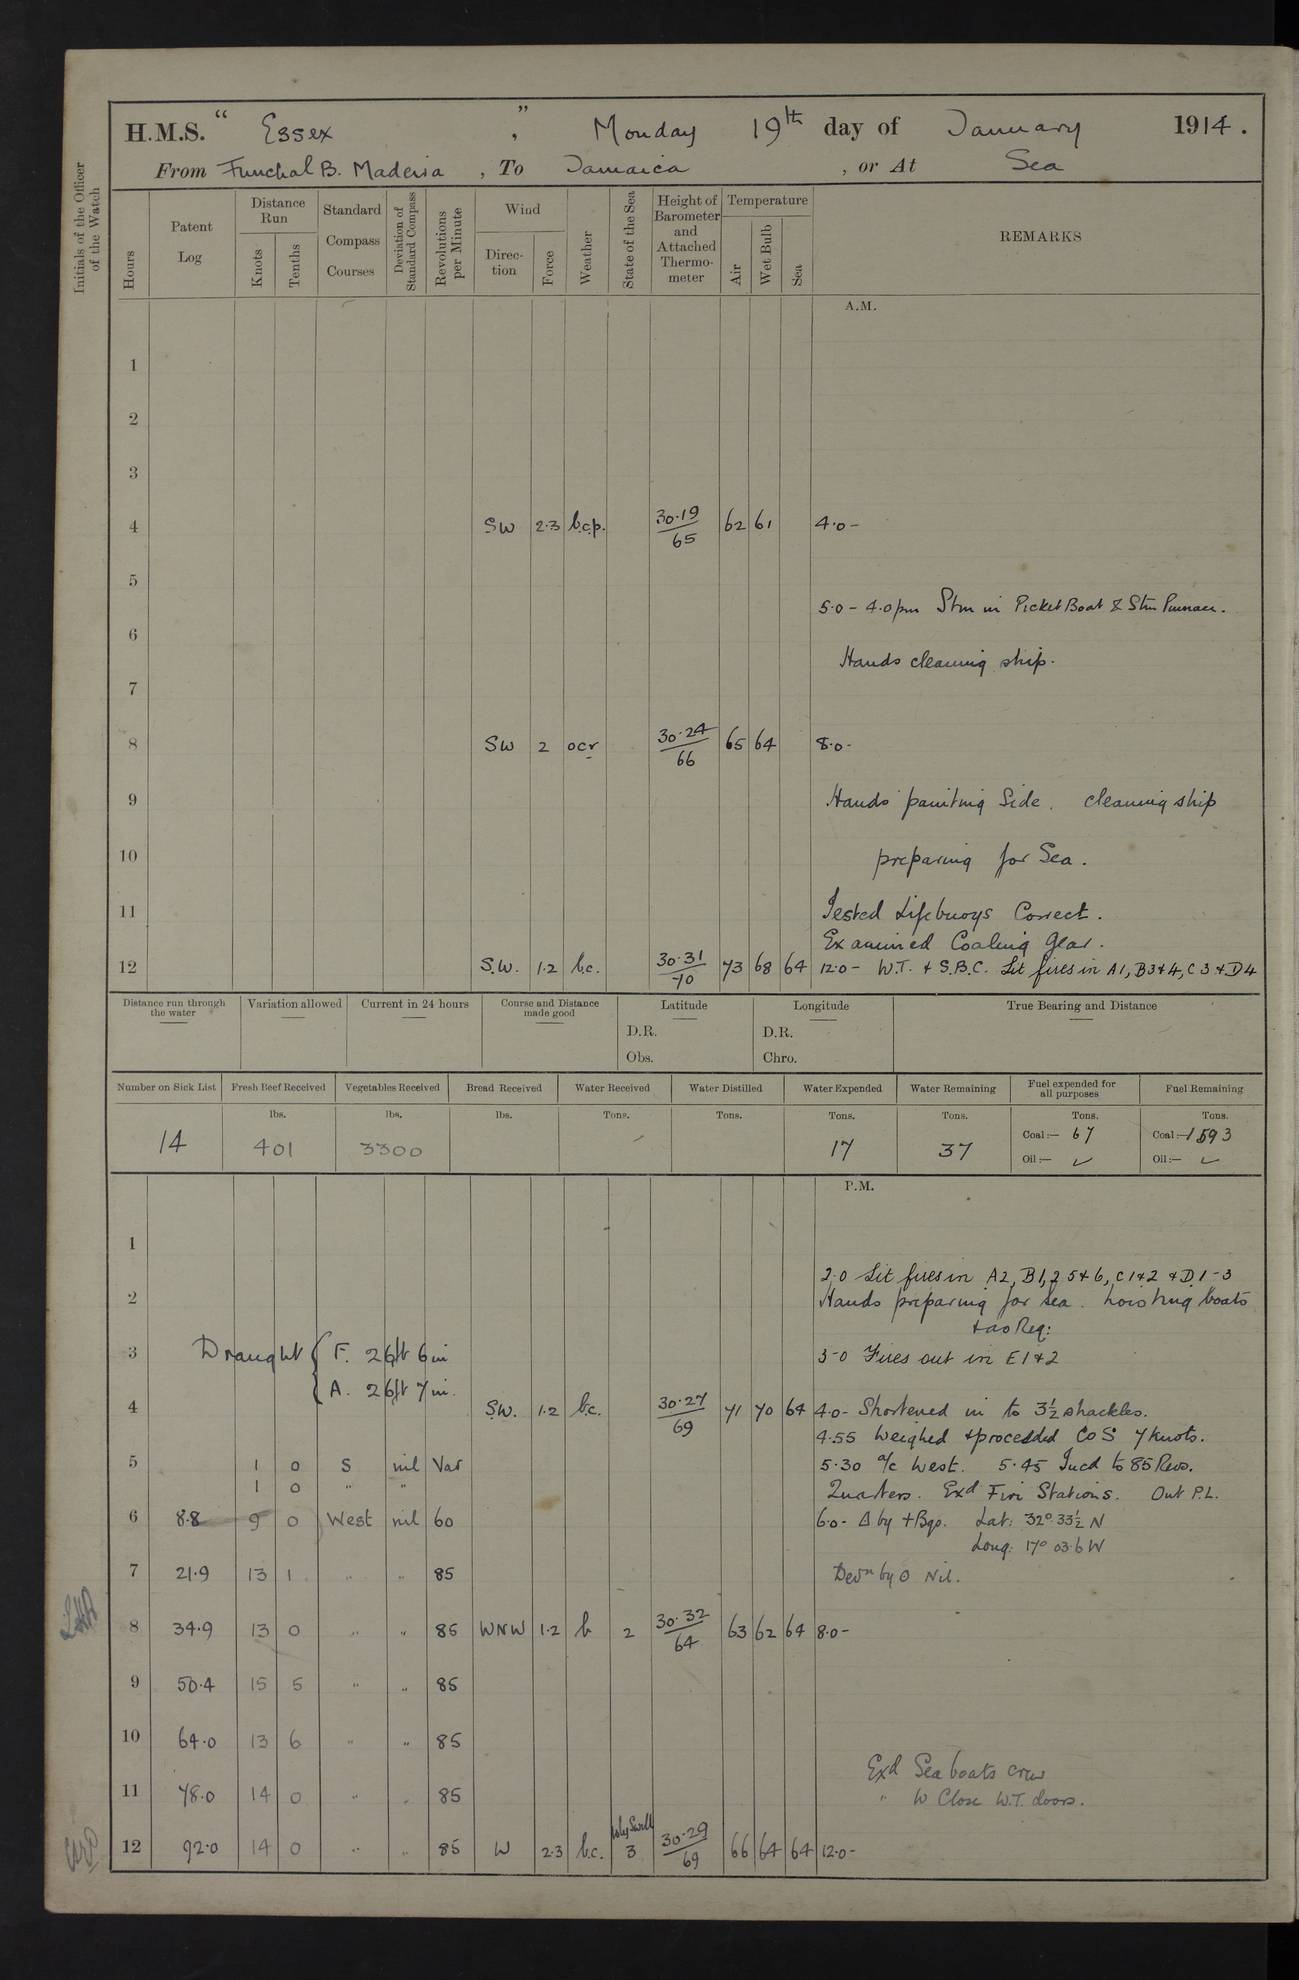 H.M.S. " Essex " , Monday 19th day of January 1914.
From Funchal B. Maderia , To Jamaica , or At Sea
Initials of the Officer of the Watch
Hours
Patent Log
Distance Run
Knots
Tenths
Standard Compass Courses
Deviation of Standard Compass
Revolutions per Minute
Wind
Direction
Force
Weather
State of the Sea
Height of Barometer and Attached Thermometer
Temperature
Air
Wet Bulb
Sea
REMARKS
A.M.
1
2
3
4 SW 2.3 b.c.p. 30.19/65 62 61 4.0 –
5
5.0 – 4.0 pm Stm in Picket Boat & Stm Pinnace.
6
Hands cleaning ship.
7
8 SW 2 ocr 30.24/66 65 64 8.0 -
9 Hands painting Side. cleaning ship
10 preparing for Sea.
11 Tested Lifebuoys Correct.
Examined Coaling Gear.
12 S.W. 1.2 b.c. 30.31/70 73 68 64 12.0 – W.T. & S.B.C. Lit fires in A1, B3&4, C3 & D4
Distance run through the water
Variation allowed
Current in 24 hours
Course and Distance made good
Latitude
D.R.
Obs.
Longitude
D.R.
Chro.
True Bearing and Distance
Number on Sick List
Fresh Beef Received
Vegetables Received
Bread Received
Water Received
Water Distilled
Water Expended
Water Remaining
Fuel expended for all purposes
Fuel Remaining
lbs. lbs. lbs. Tons. Tons. Tons. Tons. Tons. Tons.
14 401 3300 17 37 Coal:— 67 Coal:— 1593
Oil:— ✓ Oil:— ✓
P.M.
1
2.0 Lit fires in A2, B1,2 5&6, C1&2 & D1-3
2 Hands preparing for sea. hoisting boats
& ao Req:
3 Draught { F. 26ft 6in 3-0 Fires out in E1&2
A. 26ft 7in.
4 S.W. 1.2 b.c. 30.27/69 71 70 64 4.0 - Shortened in to 3½ shackles.
4.55 Weighed & proceeded Co S 7 knots.
5 1 0 S nil Var 5.30 a/c West. 5.45 Incd to 85 Revs.
1 0 " " Quarters. Exd Fire Stations. Out P.L.
6 8.8 9 0 West nil 60 6.0 - Δ by + Bgs. Lat: 32° 33½ N
Long: 17° 03.6 W
7 21.9 13 1 " " 85 Devn by O Nil.
8 34.9 13 0 " " 85 WNW 1.2 b 2 30.32/64 63 62 64 8.0 -
9 50.4 15 5 " " 85
10 64.0 13 6 " " 85
Exd Sea boats crew
11 78.0 14 0 " " 85 " W Close W.T. doors.
12 92.0 14 0 " " 85 W 2.3 b.c. 3 30.29/69 66 64 64 12.0 -